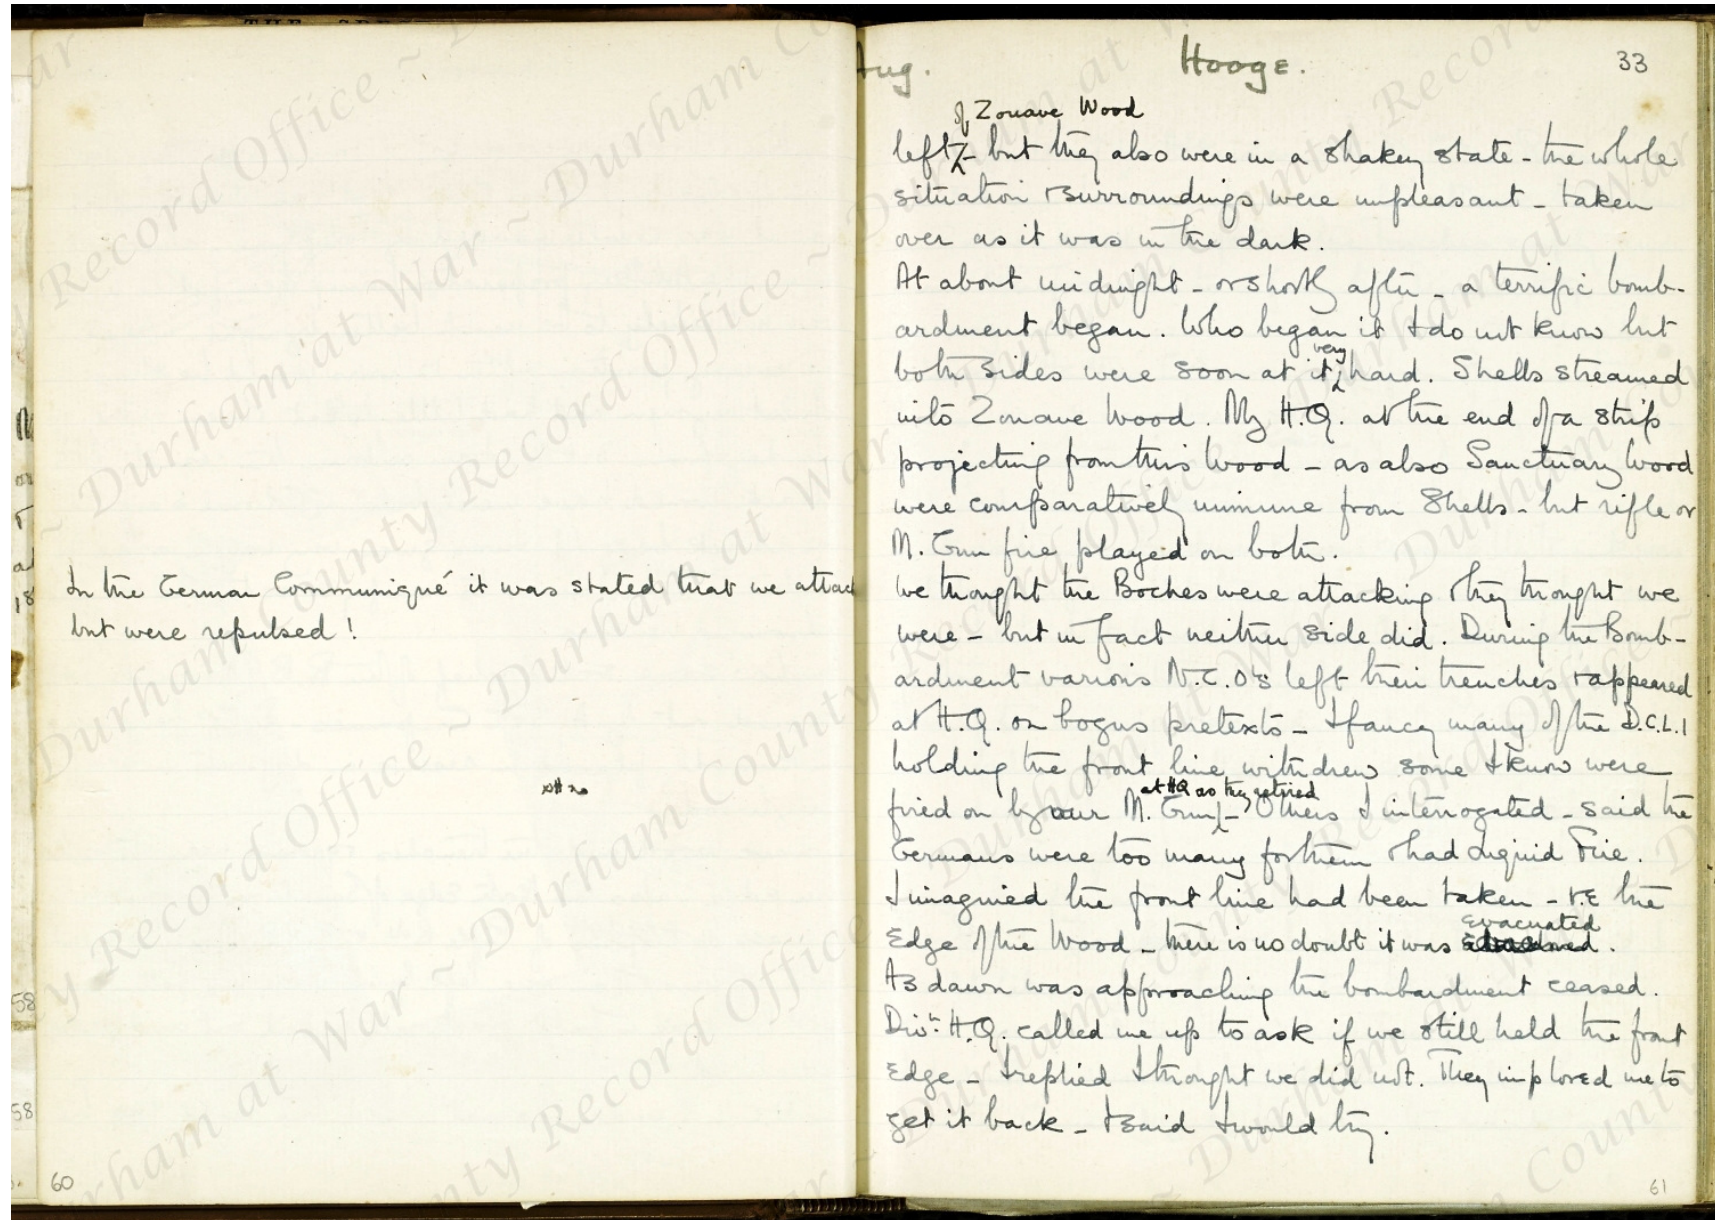 In the German Communiqué it was stated that we attack
but were repulsed !
60
58
58
Aug. Hooge. 33
of Zouave Wood
left - but they also were in a shakey state - the whole
situation & surroundings were unpleasant - taken
over as it was in the dark.
At about midnight - or shortly after - a terrific bomb-
ardment began. Who began it I do not know but
very
both sides were soon at it hard. Shells streamed
into Zouave Wood. My H.Q. at the end of a strip
projecting from this Wood - as also Sanctuary Wood
were comparatively immune from Shells - but rifle or
M. Gun fire played on both.
We thought the Boches were attacking & they thought we
were - but in fact neither side did. During the Bomb-
ardment various N.C.O's left their trenches & appeared
at H.Q. on bogus pretexts - I fancy many of the D.C.L.I
holding the front line withdrew some I know were
at HQ as they retired
fired on by our M. Gun - Others I interrogated - said the
Germans were too many for them & had Liquid Fire.
I imagined the front line had been taken - I.E the
Edge of the Wood - there is no doubt it was
evacuated
As dawn was approaching the bombardment ceased.
Divn. H.Q. called me up to ask if we still held the front
Edge - I replied I thought we did not. They implored me to
get it back - I said I would try.
61
Durham County Record Office ~ Durham at War